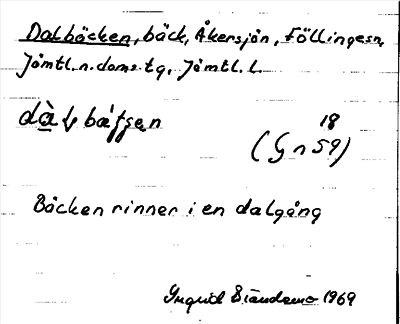 Dalbäcken, bäck, Åkersjön, Föllingesn,
Jämtl. n. doms. tg, Jämtl. l.
18
(Gn59)
Bäcken rinner i en dalgång
Ingrid 1969